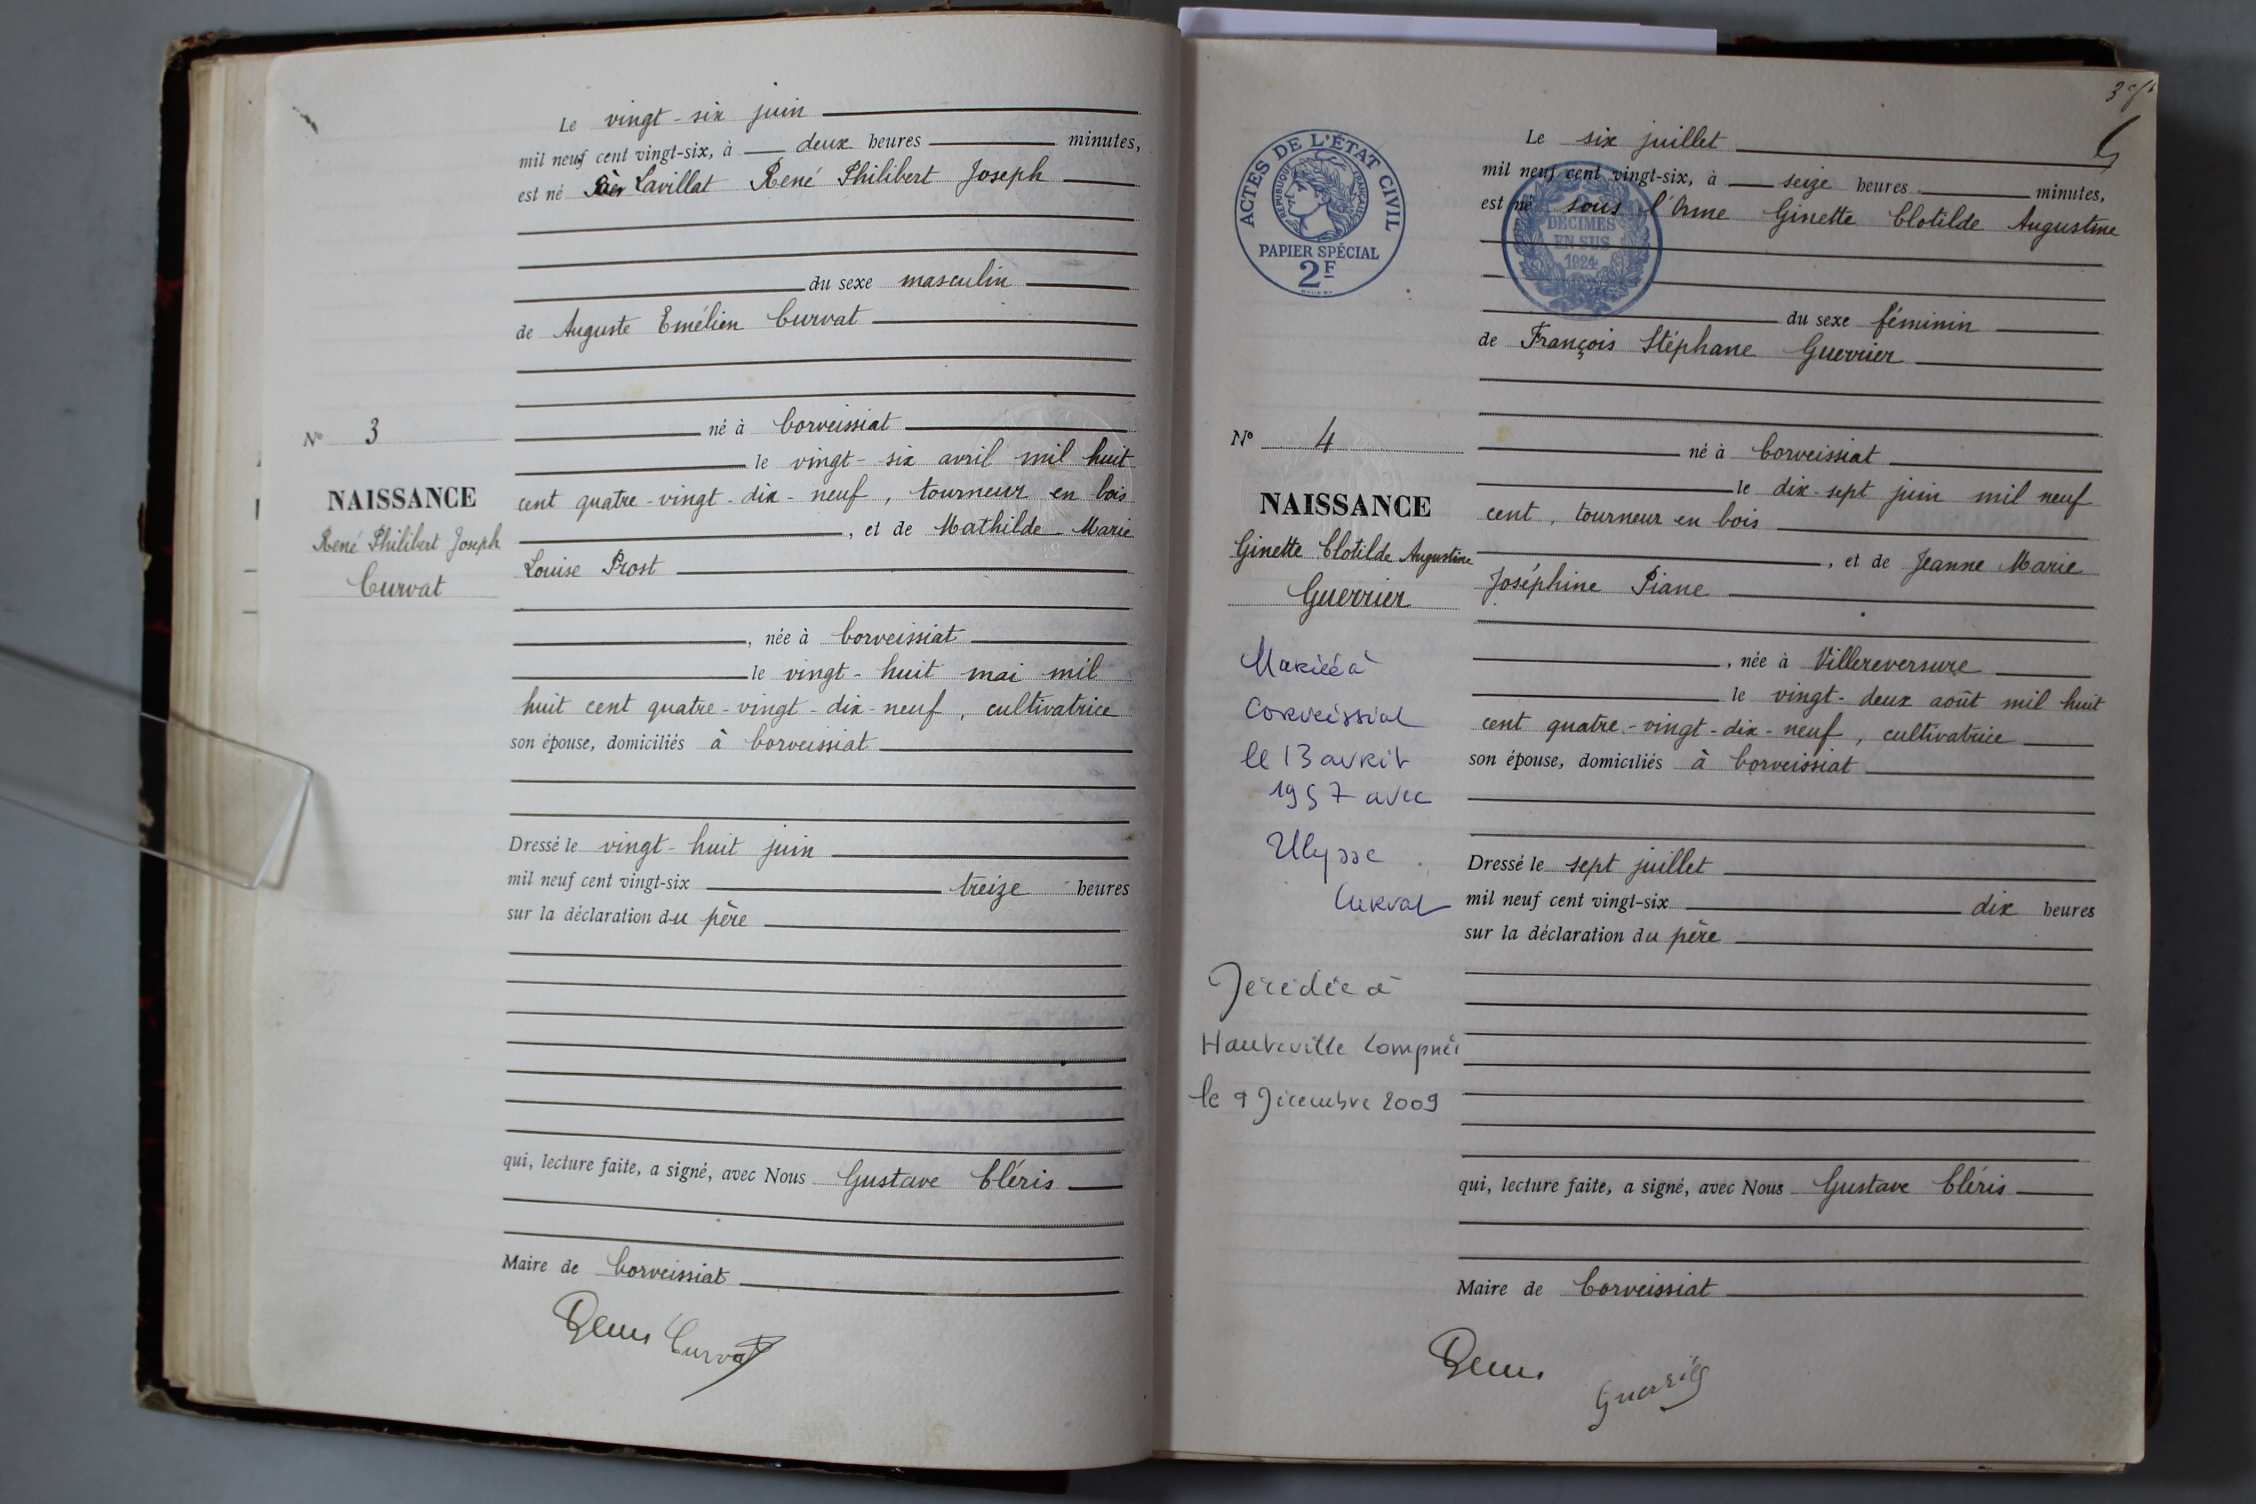 Le vingt-six juin
mil neuf cent vingt-six, à deux heures minutes,
est né Lavillat René Philibert Joseph
du sexe masculin
de Auguste Emélien Curvat
né à Corveissiat
le vingt-six avril mil huit
cent quatre-vingt-dix-neuf, tourneur en bois
, et de Mathilde Marie
Louise Prost
, née à Corveissiat
le vingt-huit mai mil
huit cent quatre-vingt-dix-neuf, cultivatrice
son épouse, domiciliés à Corveissiat
Dressé le vingt-huit juin
mil neuf cent vingt-six treize heures
sur la déclaration du père
qui, lecture faite, a signé, avec Nous Gustave Cléris
Maire de Corveissiat
Curvat
N° 3
NAISSANCE
René Philibert Joseph
Curvat
ACTES DE L'ÉTAT CIVIL
RÉPUBLIQUE FRANÇAISE
PAPIER SPÉCIAL
2F
DÉCIMES
EN SUS
1924
Le six juillet
mil neuf cent vingt-six, à seize heures minutes,
est né sous l'Orme Ginette Clotilde Augustine
du sexe féminin
de François Stéphane Guerrier
né à Corveissiat
le dix-sept juin mil neuf
cent, tourneur en bois
, et de Jeanne Marie
Joséphine Piane
, née à Villereversure
le vingt-deux août mil huit
cent quatre-vingt-dix-neuf, cultivatrice
son épouse, domiciliés à Corveissiat
Dressé le sept juillet
mil neuf cent vingt-six dix heures
sur la déclaration du père
qui, lecture faite, a signé, avec Nous Gustave Cléris
Maire de Corveissiat
Guerrier
N° 4
NAISSANCE
Ginette Clotilde Augustine
Guerrier
Mariée à
Corveissiat
le 13 avril
1957 avec
Ulysse
Curvat
Décédée à
Hauteville Lompnes
le 9 Décembre 2009